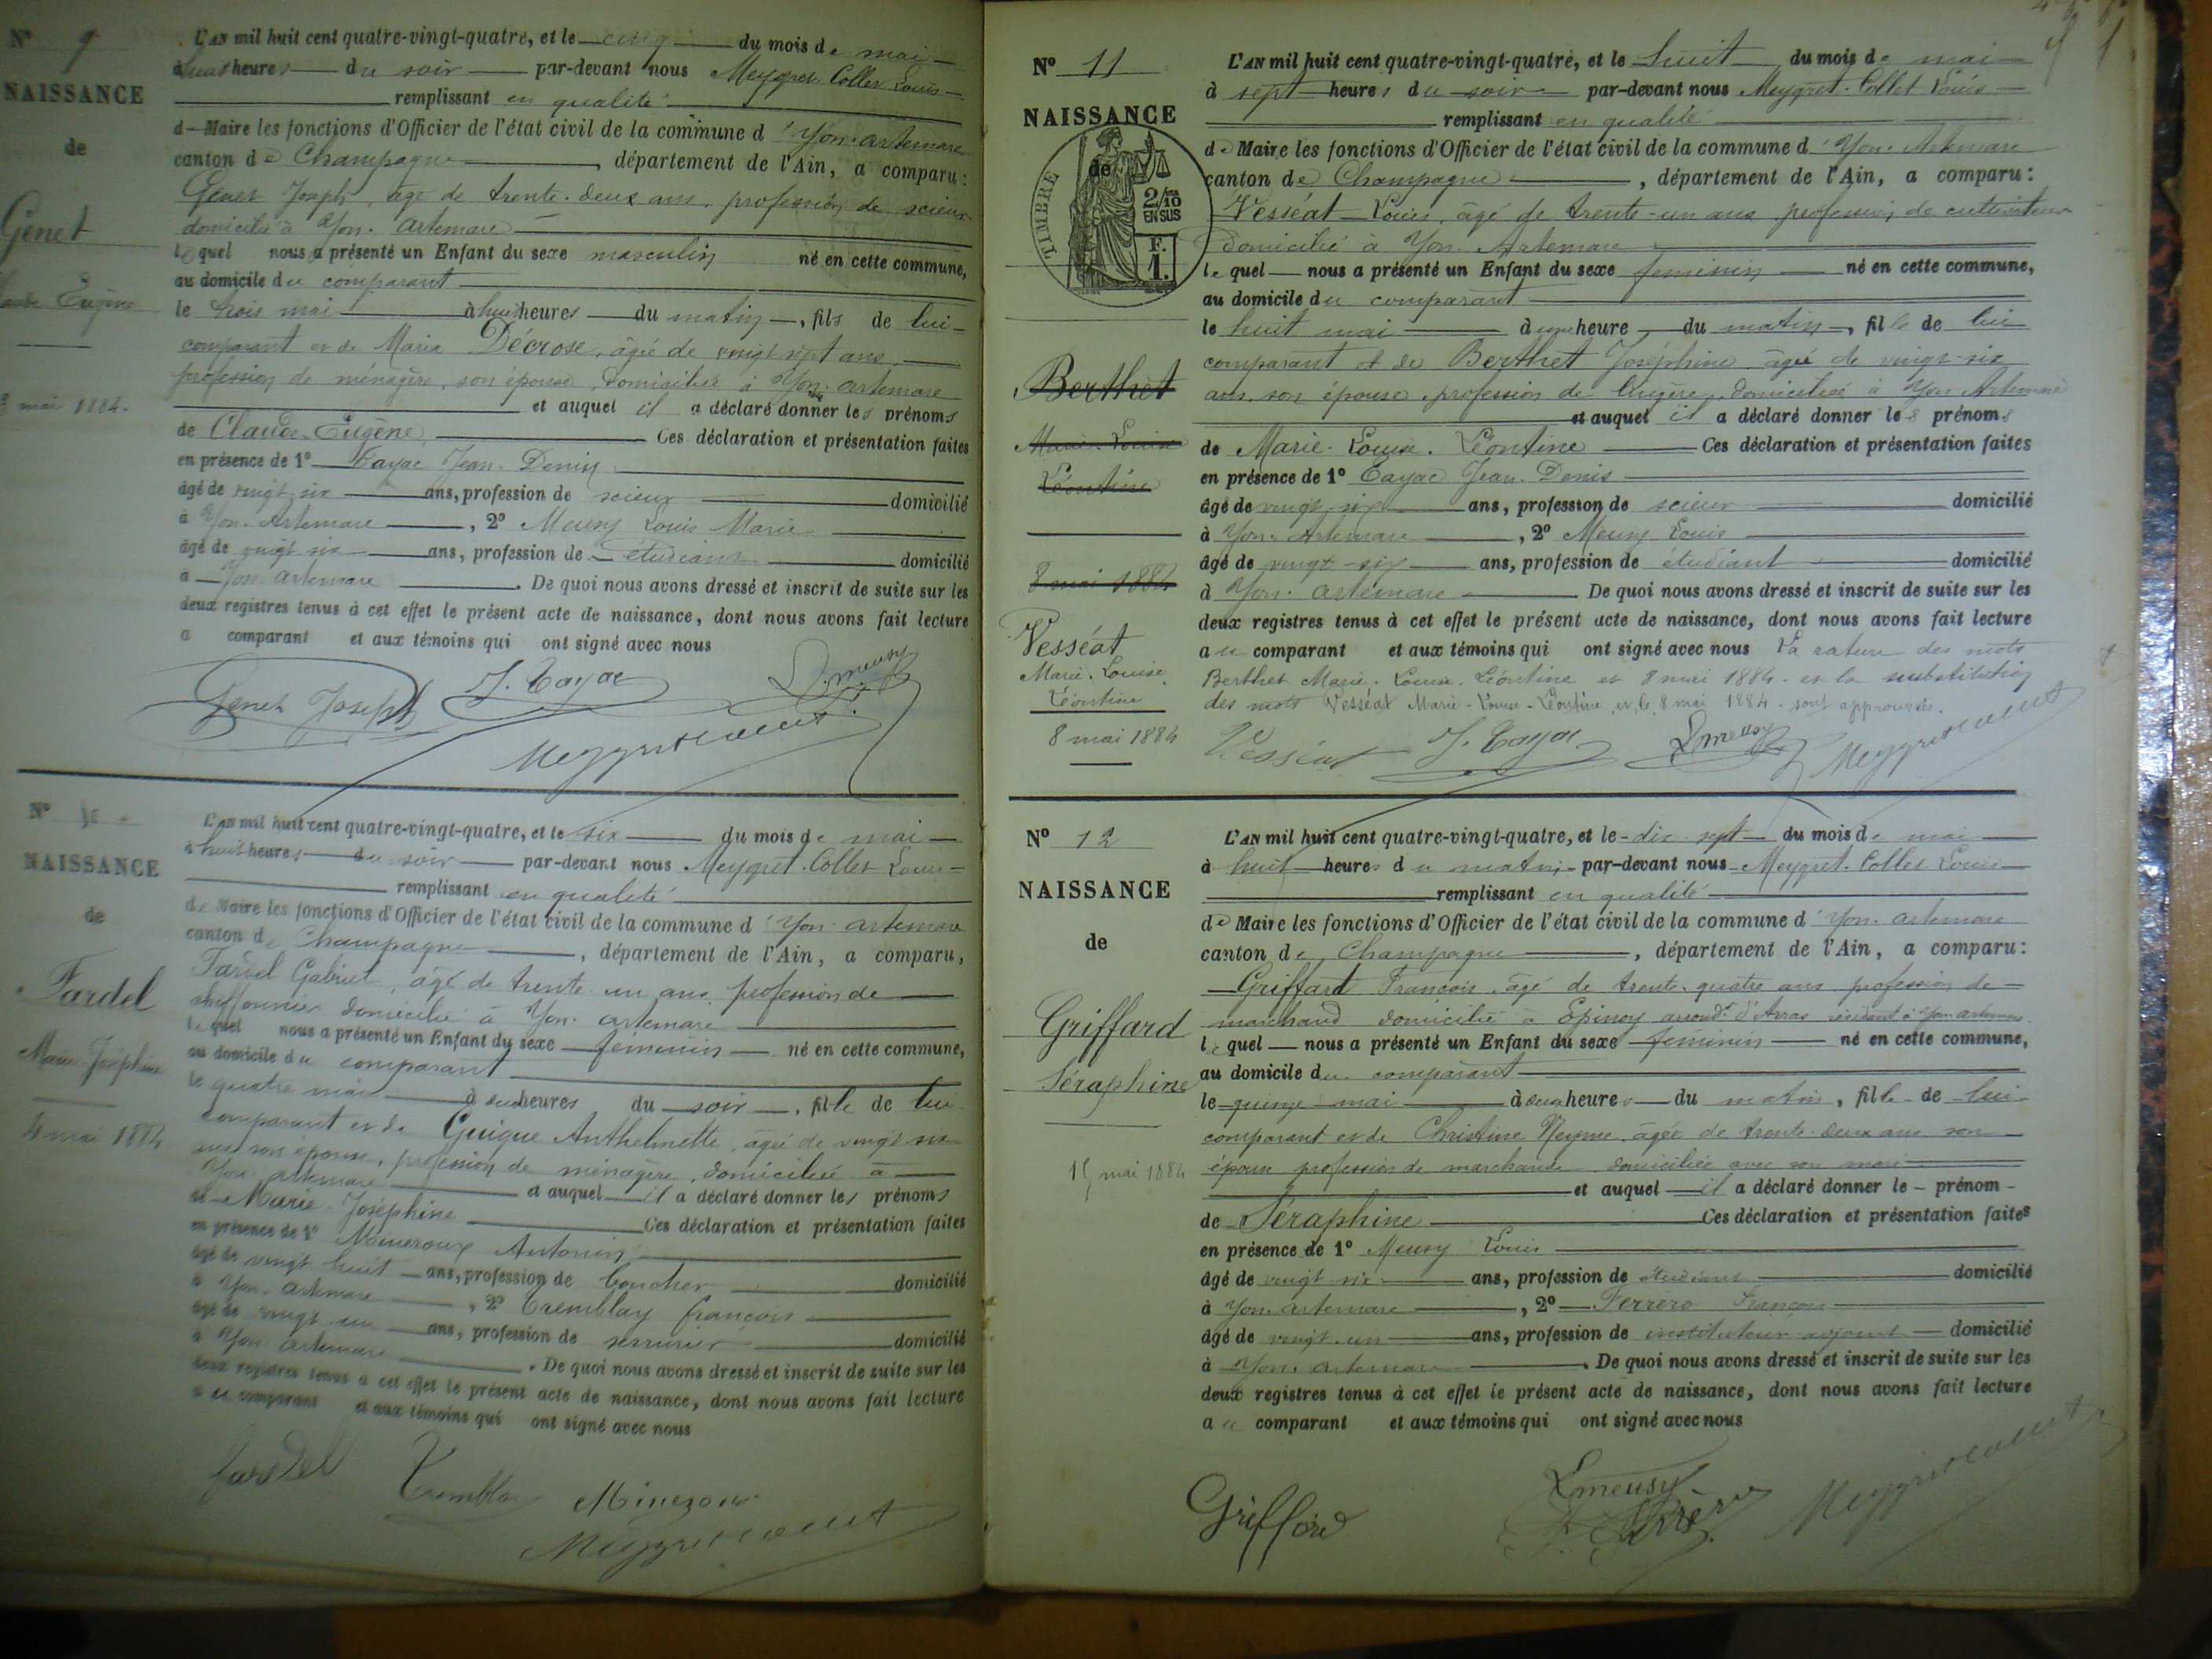 N° 9
NAISSANCE
de
Genet
Eugène
3 mai 1884.
L'AN mil huit cent quatre-vingt-quatre, et le cinq du mois de mai
à huit heures du soir par-devant nous Meygret-Collet Louis
remplissant en qualité
de Maire les fonctions d'Officier de l'état civil de la commune d'Yon-artemare
canton de Champagne, département de l'Ain, a comparu:
Genet Joseph, âgé de trente-deux ans, profession de scieur
domicilié à Yon-artemare
lequel nous a présenté un Enfant du sexe masculin né en cette commune,
au domicile du comparant
le trois mai à huit heures du matin, fils de lui
comparant et de Maria Décrose, âgée de vingt sept ans,
profession de ménagère, son épouse, domiciliée à Yon-artemare
et auquel il a déclaré donner les prénoms
de Claude-Eugène Ces déclaration et présentation faites
en présence de 1° Cayac Jean-Denis
âgé de vingt-six ans, profession de scieur domicilié
à Yon-Artemare, 2° Meusy Louis Marie
âgé de vingt six ans, profession de étudiant domicilié
à Yon artemare. De quoi nous avons dressé et inscrit de suite sur les
deux registres tenus à cet effet le présent acte de naissance, dont nous avons fait lecture
a comparant et aux témoins qui ont signé avec nous
Genet Joseph J. Cayac L. meusy
Meygret Collet
N° 10
NAISSANCE
de
Fardel
Marie Joséphine
4 mai 1884
L'AN mil huit cent quatre-vingt-quatre, et le six du mois de mai
à huit heures du soir par-devant nous Meygret-Collet Louis
remplissant en qualité
de Maire les fonctions d'Officier de l'état civil de la commune d'Yon-artemare
canton de Champagne, département de l'Ain, a comparu,
Fardel Gabriel, âgé de trente-un ans, profession de
chiffonnier domicilié à Yon-artemare
lequel nous a présenté un Enfant du sexe féminin né en cette commune,
au domicile du comparant
le quatre mai à heures du soir, fille de lui
comparant et de Guigue Anthelmette, âgée de vingt-six
ans son épouse, profession de ménagère, domiciliée à
Yon-artemare et auquel il a déclaré donner les prénoms
de Marie-Joséphine Ces déclaration et présentation faites
en présence de 1° Antonin
âgé de vingt huit ans, profession de boucher domicilié
à Yon-artemare, 2° Tremblay françois
âgé de vingt un ans, profession de serrurier domicilié
à Yon artemare. De quoi nous avons dressé et inscrit de suite sur les
deux registres tenus à cet effet le présent acte de naissance, dont nous avons fait lecture
au comparant et aux témoins qui ont signé avec nous
fardel Tremblay
Meygret Collet
N° 11
NAISSANCE
de
TIMBRE
2/10 EN SUS
F. 1.
Berthet
Marie-Louise
Léontine
8 mai 1884
Vesséat
Marie-Louise
Léontine
8 mai 1884
L'AN mil huit cent quatre-vingt-quatre, et le huit du mois de mai
à sept heures du soir par-devant nous Meygret-Collet Louis
remplissant en qualité
de Maire les fonctions d'Officier de l'état civil de la commune d'Yon-Artemare
canton de Champagne, département de l'Ain, a comparu:
Vesséat Louis, âgé de trente-un ans profession de cultivateur
domicilié à Yon-Artemare
lequel nous a présenté un Enfant du sexe féminin né en cette commune,
au domicile du comparant
le huit mai à une heure du matin, fille de lui
comparant et de Berthet Joséphine âgée de vingt-six
ans, son épouse, profession de lingère, domiciliée à Yon Artemare
et auquel il a déclaré donner les prénoms
de Marie-Louise-Léontine Ces déclaration et présentation faites
en présence de 1° Cayac Jean-Denis
âgé de vingt-six ans, profession de scieur domicilié
à Yon-Artemare, 2° Meusy Louis
âgé de vingt-six ans, profession de étudiant domicilié
à Yon-artemare De quoi nous avons dressé et inscrit de suite sur les
deux registres tenus à cet effet le présent acte de naissance, dont nous avons fait lecture
au comparant et aux témoins qui ont signé avec nous La rature des mots
Berthet Marie-Louise-Léontine et 8 mai 1884. et la substitution
des mots Vesséat Marie-Louise-Léontine, et, le 8 mai 1884. sont approuvés.
Vesséat J. Cayac L meusy Meygret Collet
N° 12
NAISSANCE
de
Griffard
Séraphine
15 mai 1884
L'AN mil huit cent quatre-vingt-quatre, et le dix-sept du mois de mai
à huit heures du matin par-devant nous Meygret-Collet Louis
remplissant en qualité
de Maire les fonctions d'Officier de l'état civil de la commune d'Yon-artemare
canton de Champagne, département de l'Ain, a comparu:
Griffard François, âgé de trente-quatre ans profession de
marchand domicilié à Epinoy arrondt d'Arras résidant à Yon artemare
lequel nous a présenté un Enfant du sexe féminin né en cette commune,
au domicile du comparant
le quinze mai à heures du matin, fille de lui
comparant et de Christine Neyme, âgée de trente-deux ans son
épouse profession de marchande domiciliée avec son mari
et auquel il a déclaré donner le prénom
de Séraphine Ces déclaration et présentation faites
en présence de 1° Meusy Louis
âgé de vingt-six ans, profession de étudiant domicilié
à Yon-artemare, 2° Ferrero François
âgé de vingt-un ans, profession de instituteur adjoint domicilié
à Yon-artemare. De quoi nous avons dressé et inscrit de suite sur les
deux registres tenus à cet effet le présent acte de naissance, dont nous avons fait lecture
au comparant et aux témoins qui ont signé avec nous
Griffard L meusy Meygret Collet